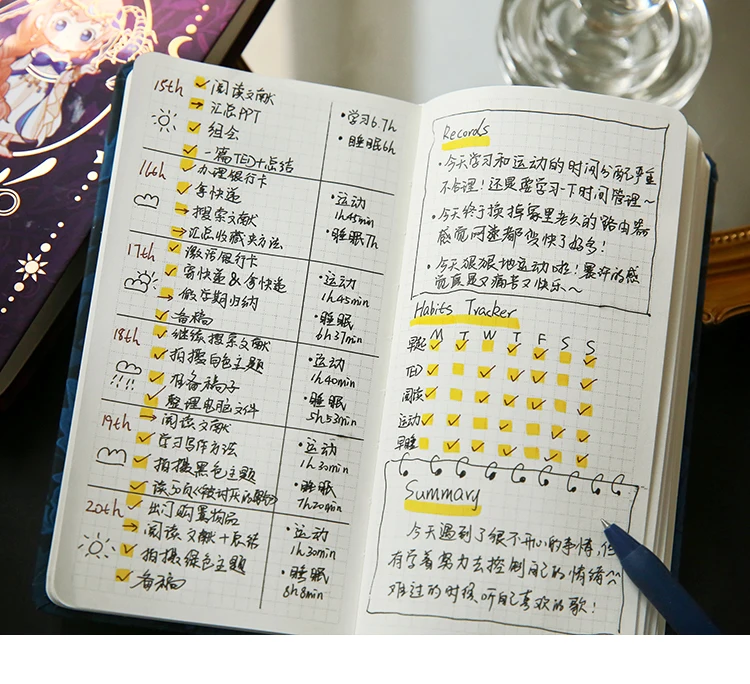 15th ✓ 阅读文献
→ 汇总PPT
✓ 组会
✓ 一篇TED+总结
• 学习6.7h
• 睡眠6h
16th ✓ 办理银行卡
✓ 拿快递
→ 搜索文献
→ 汇总收藏夹方法
• 运动
1h45min
• 睡眠7h
17th ✓ 激活银行卡
✓ 寄快递&拿快递
→ 假学期归纳
✓ 看稿
• 运动
1h45min
• 睡眠
6h37min
18th ✓ 继续搜索文献
✓ 拍摄白色主题
✓ 准备稿子
✓ 整理电脑文件
• 运动
1h40min
• 睡眠
5h53min
19th → 阅读文献
✓ 学习写作方法
✓ 拍摄黑色主题
✓ 读50页《被讨厌的勇气》
• 运动
1h30min
• 睡眠
7h20min
20th ✓ 出门购置物品
→ 阅读文献+总结
✓ 拍摄绿色主题
✓ 看稿
• 运动
1h30min
• 睡眠
8h8min
Records
• 今天学习和运动的时间分配严重
不合理!还是要学习一下时间管理~
• 今天终于换掉家里老久的路由器
感觉网速都愉快了好多!
• 今天狠狠地运动啦!暴汗的感
觉真是又痛苦又快乐~
Habits Tracker
M T W T F S S
早起
TED
阅读
运动
早睡
Summary
今天遇到了很不开心的事情,但
有学着努力去控制自己的情绪~
难过的时候听自己喜欢的歌!